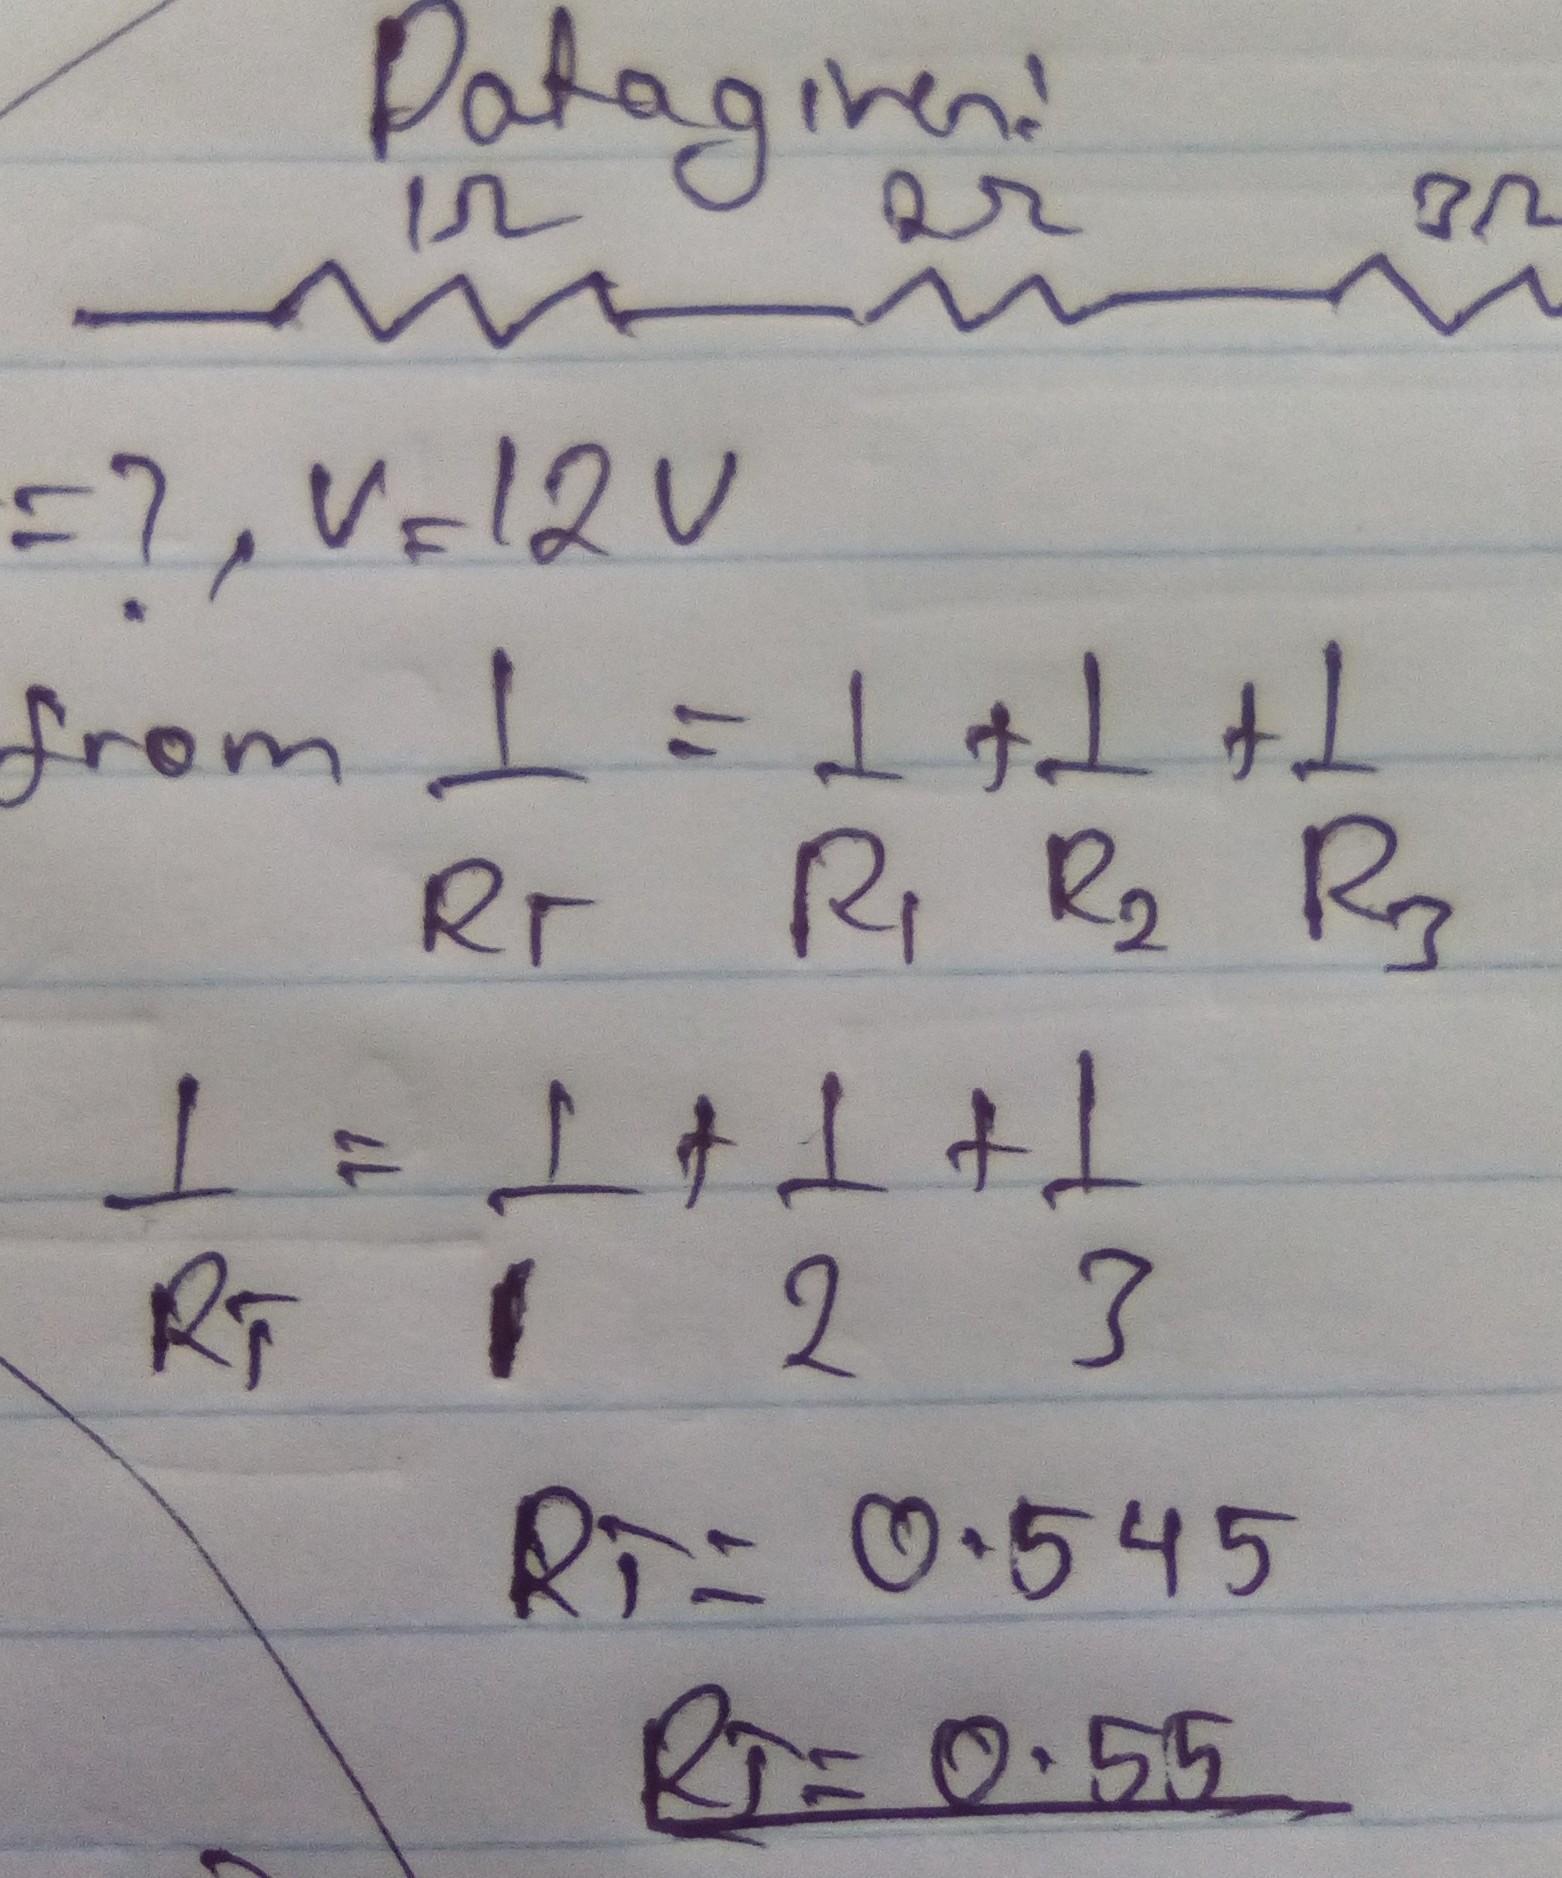 Data given:
1Ω 2Ω 3Ω
=?, V=12V
from 1/RT = 1/R1 + 1/R2 + 1/R3
1/RT = 1/1 + 1/2 + 1/3
RT = 0.545
RT = 0.55